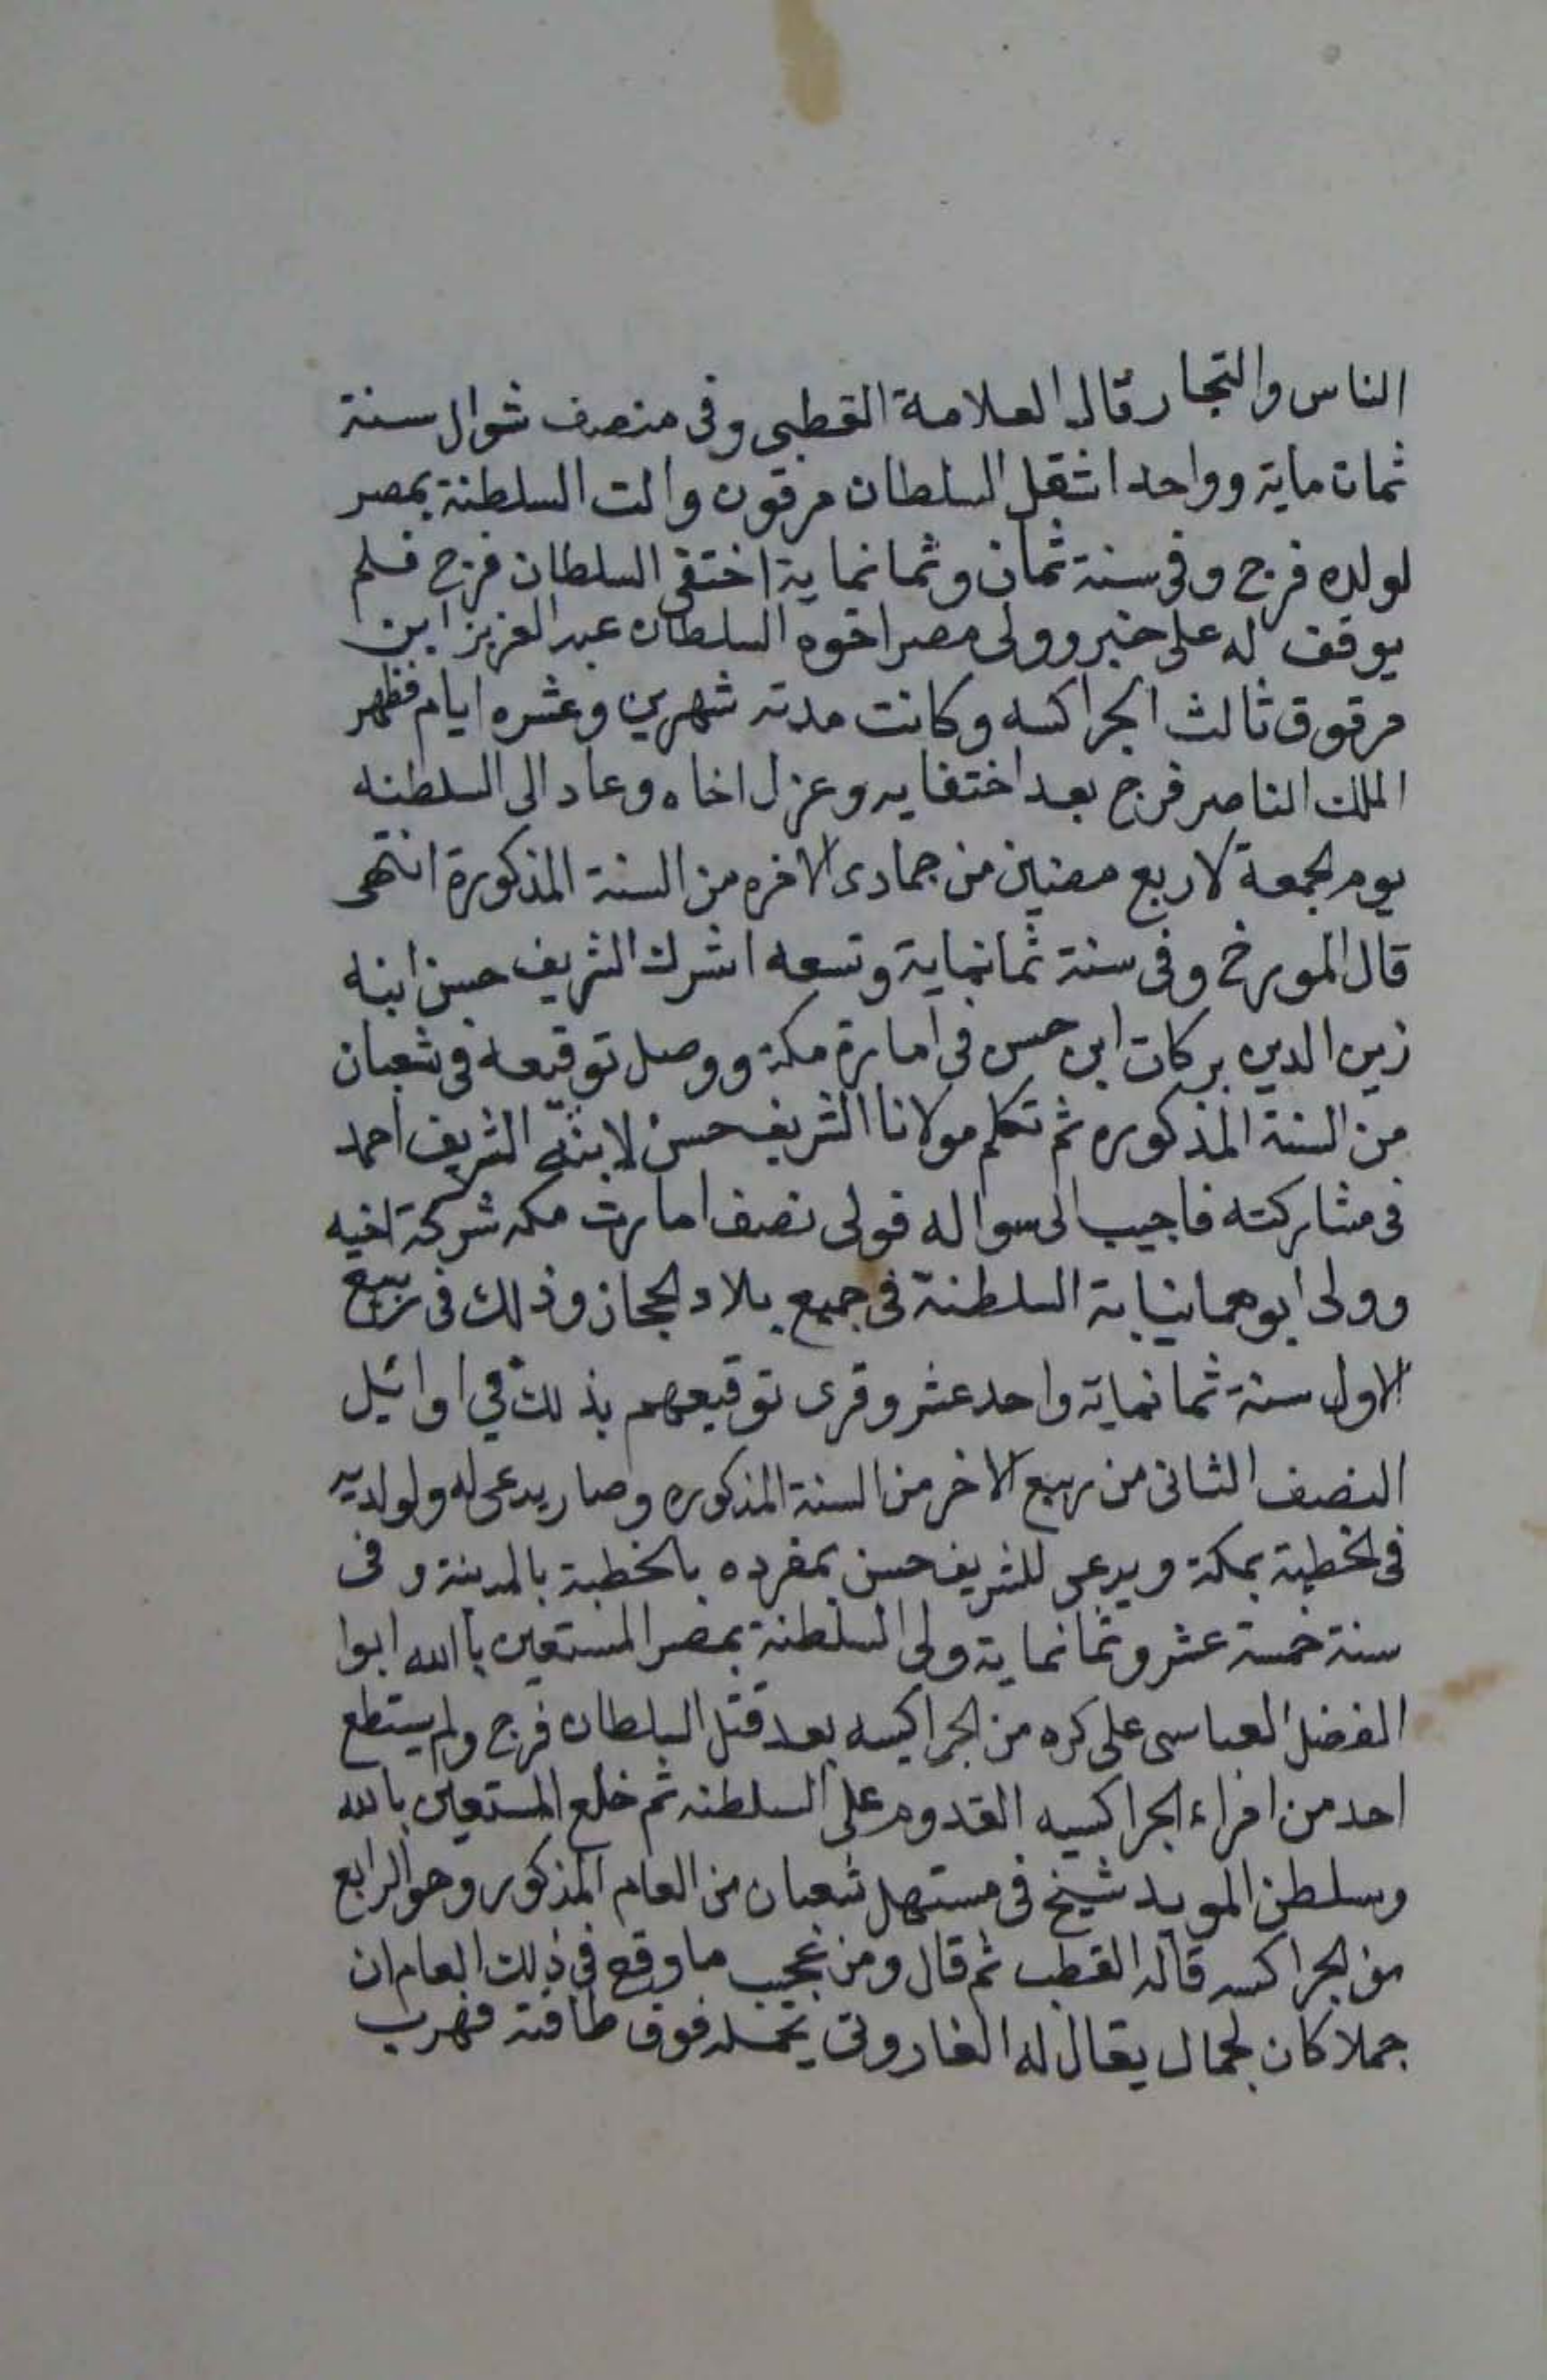 الناس والتجار قال العلامة القطبي وفي منصف شوال سنة
ثمان ماية وواحد انتقل السلطان مرقون والت السلطنة بمصر
لولده فرج وفي سنة ثمان وثمانماية اختفى السلطان فرج فلم
يوقف له على خبر وولى مصر اخوه السلطان عبد العزيز ابن
مرقوق ثالث الجراكسه وكانت مدته شهرين وعشره ايام فظهر
الملك الناصر فرج بعد اختفايه وعزل اخاه وعاد الى السلطنه
يوم الجمعة لاربع مضيين من جمادى الاخره من السنة المذكورة انتهى
قال المورخ وفي سنة ثمانماية وتسعه اشرك الشريف حسن ابنه
زين الدين بركات ابن حسن في امارة مكة ووصل توقيعه في شعبان
من السنة المذكوره ثم تكلم مولانا الشريف حسن لابنه الشريف احمد
في مشاركته فاجيب الى سواله فولى نصف امارت مكه شركة اخيه
وولى ابوهما نيابة السلطنة في جميع بلاد الحجاز وذلك في ربيع
الاول سنة ثمانماية واحد عشر وقرى توقيعهم بذلك في اوائيل
النصف الثاني من ربيع الاخر من السنة المذكوره وصار يدعى له ولولديه
في الخطبة بمكة ويدعى للشريف حسن بمفرده بالخطبة بالمدينة وفي
سنة خمسة عشر وثمانماية ولى السلطنة بمصر المستعين باالله ابوا
الفضل العباسى على كره من الجراكيسه بعد قتل السلطان فرج ولم يستطع
احد من امراء الجراكسيه القدوم على السلطنه ثم خلع المستعين بالله
وسلطن المويد شيخ في مستهل شعبان من العام المذكور وهو الرابع
من الجراكسه قاله القطب ثم قال ومن عجيب ما وقع في ذلك العام ان
جملا كان لجمال يقال له الفاروتى يحمله فوق طاقته فهرب